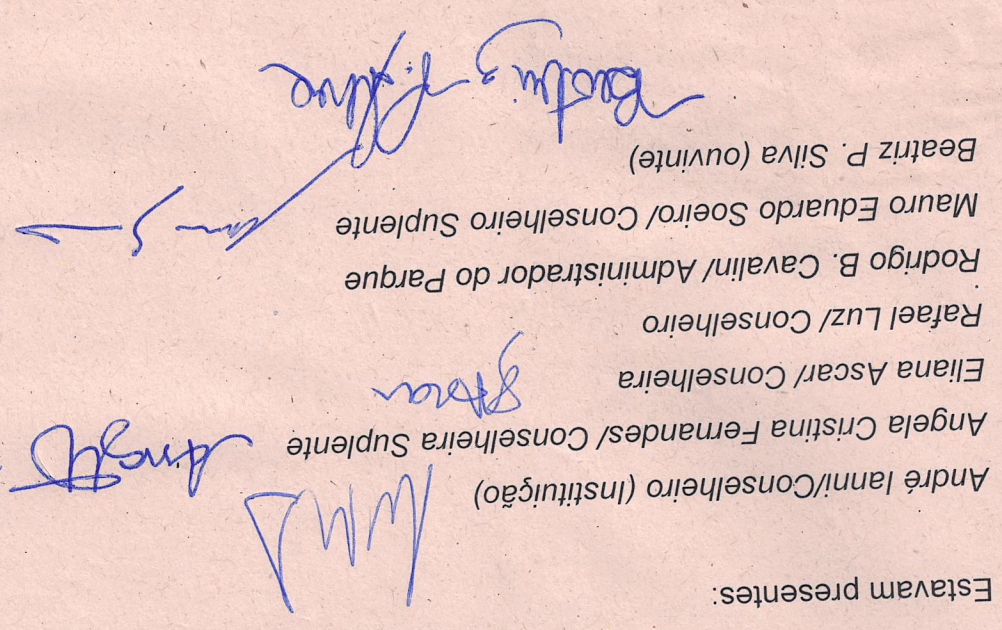 Estavam presentes:
André Ianni/Conselheiro (Instituição)
Angela Cristina Fernandes/ Conselheira Suplente
Eliana Ascar/ Conselheira
Rafael Luz/ Conselheiro
Rodrigo B. Cavalin/ Administrador do Parque
Mauro Eduardo Soeiro/ Conselheiro Suplente
Beatriz P. Silva (ouvinte)
Beatriz P. Silva